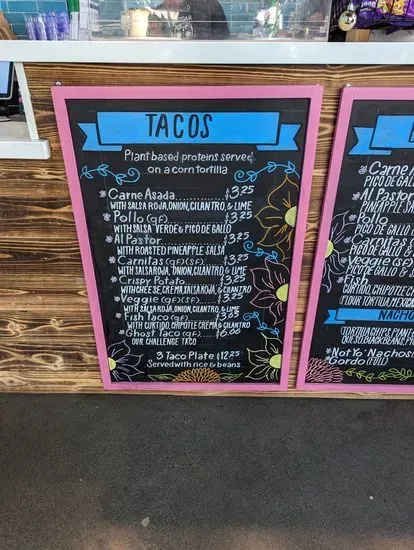 TACOS
Plant based proteins served
on a corn tortilla
Carne Asada $3.25
WITH SALSA ROJA, ONION, CILANTRO, & LIME
Pollo (GF) $3.25
WITH SALSA VERDE & PICO DE GALLO
Al Pastor $3.25
WITH ROASTED PINEAPPLE SALSA
Carnitas (GF)(SF) $3.25
WITH SALSA ROJA, ONION, CILANTRO, & LIME
Crispy Potato $3.25
WITH CHEESE, CREMA, SALSA ROJA, & CILANTRO
Veggie (GF)(SF) $3.25
WITH SALSA ROJA, ONION, CILANTRO & LIME
Fish Taco (GF)
WITH CURTIDO, CHIPOTLE CREMA & CILANTRO
Ghost Taco (GF) $6.00
OUR CHALLENGE TACO
3 Taco Plate $12.25
Served with rice & beans
Carne
PICO DE GALLO
Al Pastor
PINEAPPLE
Pollo
Carnitas
Veggie
PICO DE GALLO &
Fish
CURTIDO, CHIPOTLE
FLOUR TORTILLA
NACHO
TORTILLA CHIPS,
QUESO, BLACK BEANS,
Not Yo' Nachos
Gordo (FULL)